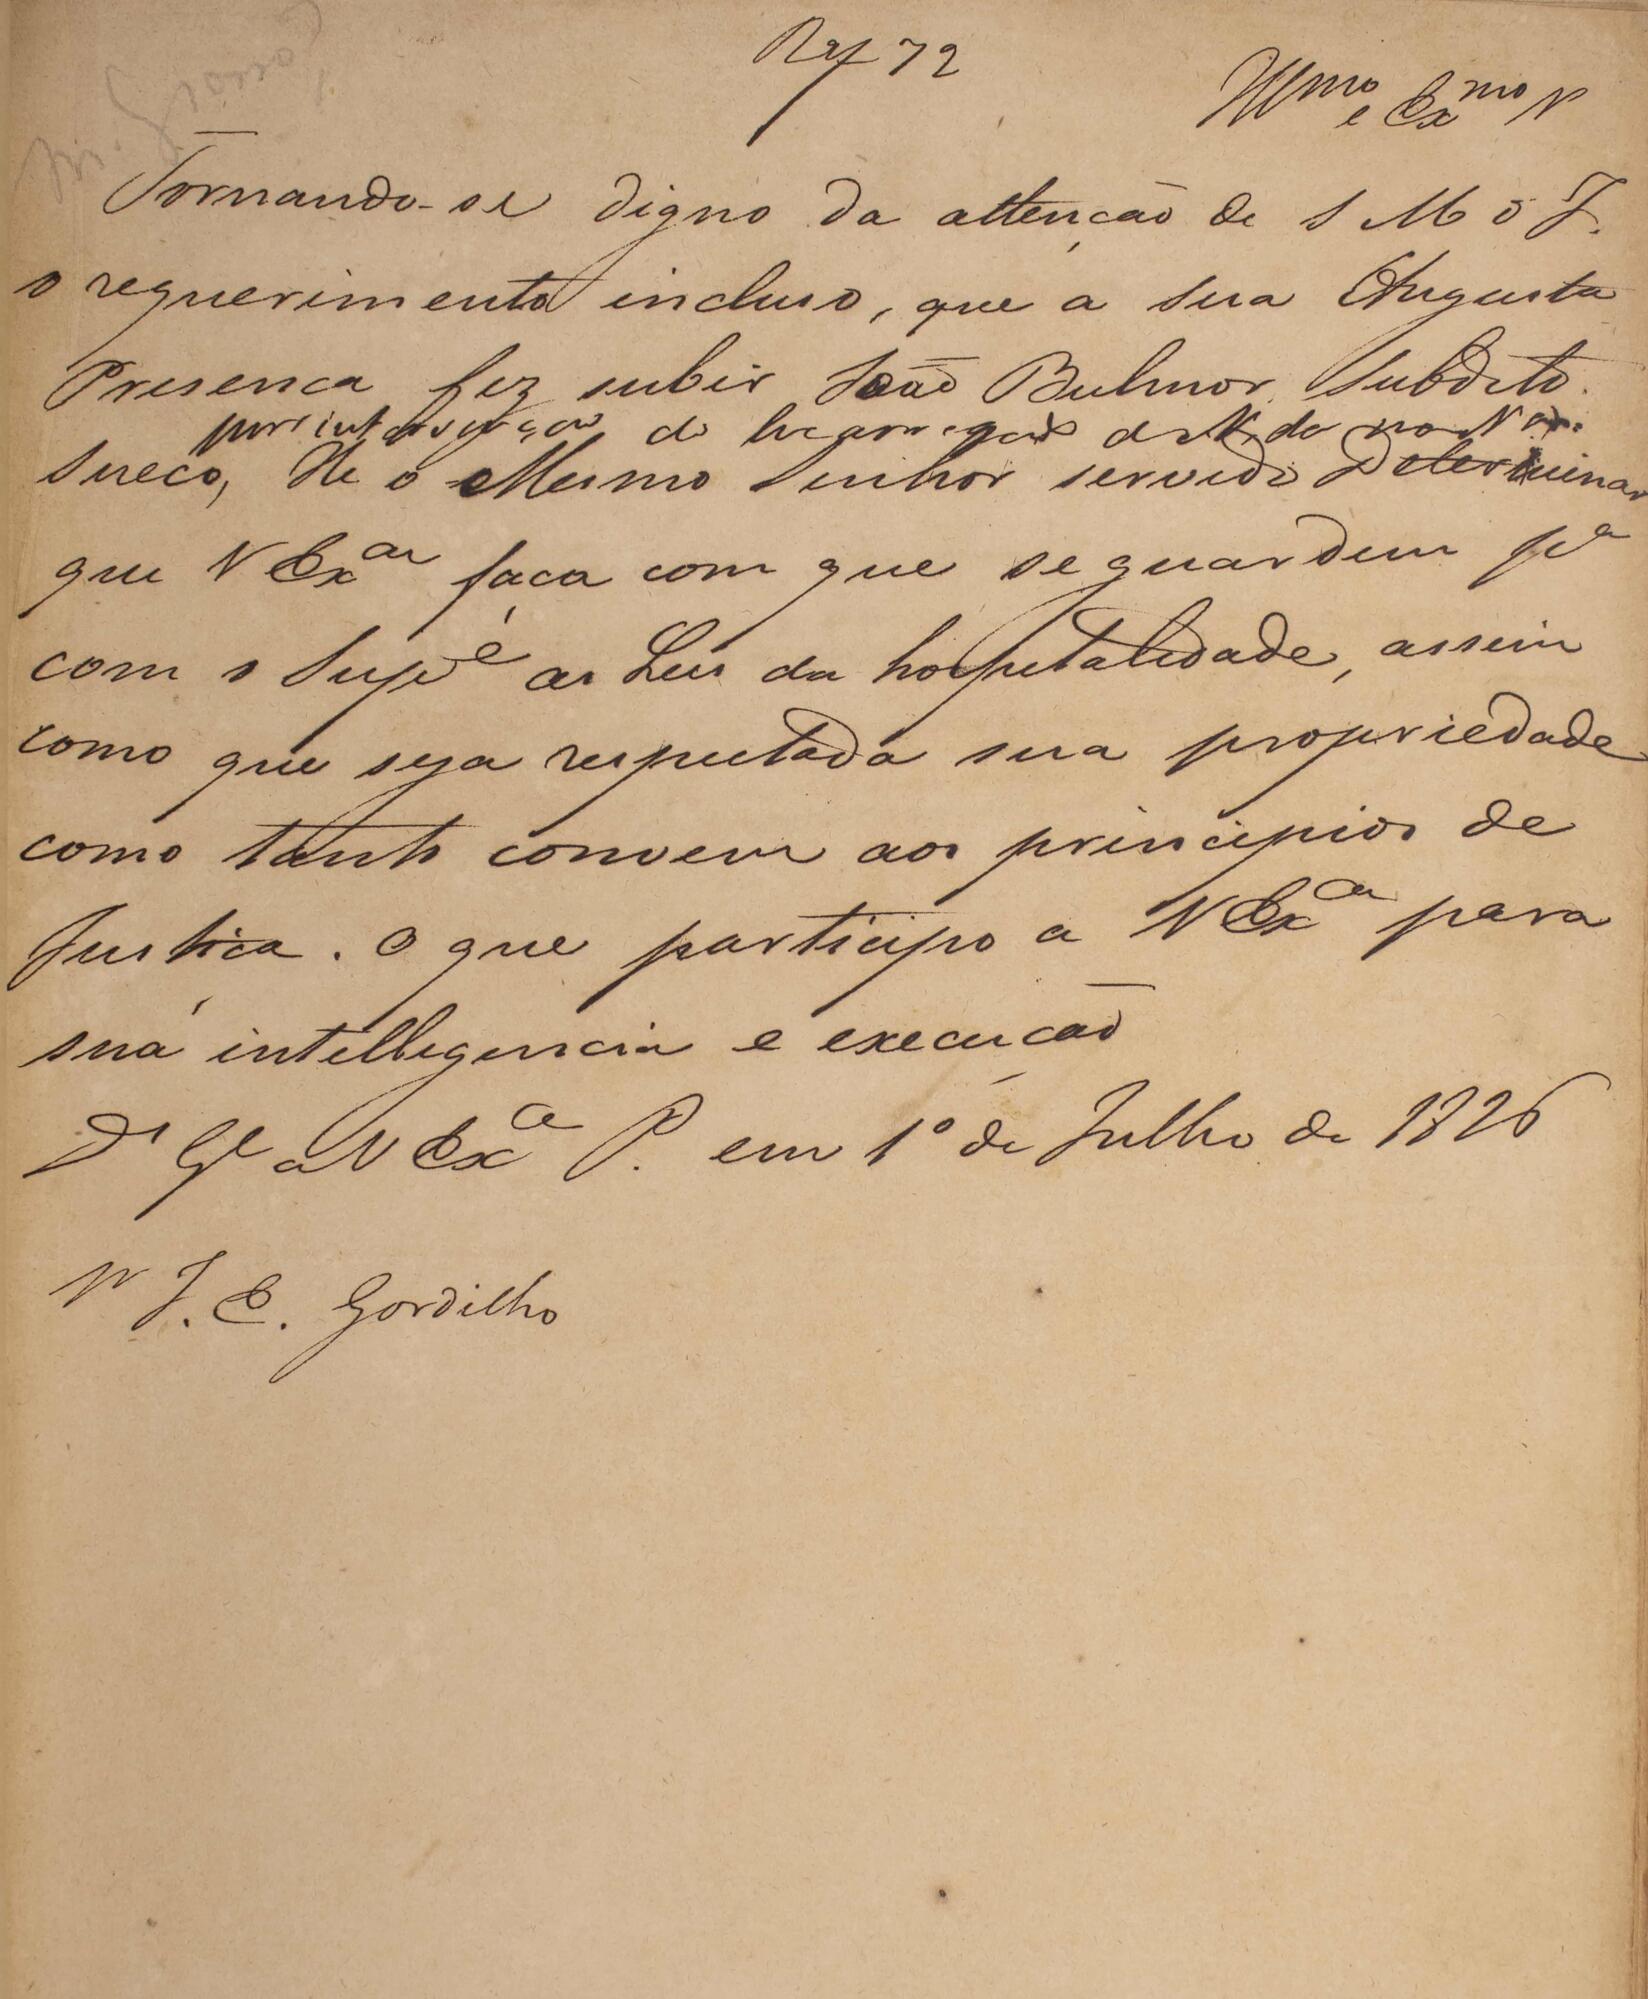 72
Illmo e Exmo
Tornando-se digno da attenção de S M o I.
o requerimento incluso, que a sua Augusta
Presença fez subir João Bulmor, Subdito
por intervenção do Encarregado de N. da
Sueco, He o Mesmo Senhor servido Determinar
que V Exca faça com que se guardem pa
com o Supe as Leis da hospitalidade, assim
como que seja respeitada sua propriedade
como tanto convem aos principios de
Justiça. O que participo a V Exca para
sua intelligencia e execução
Ds Ge a V Exca P. em 1º de Julho de 1826
J. E. Gordilho